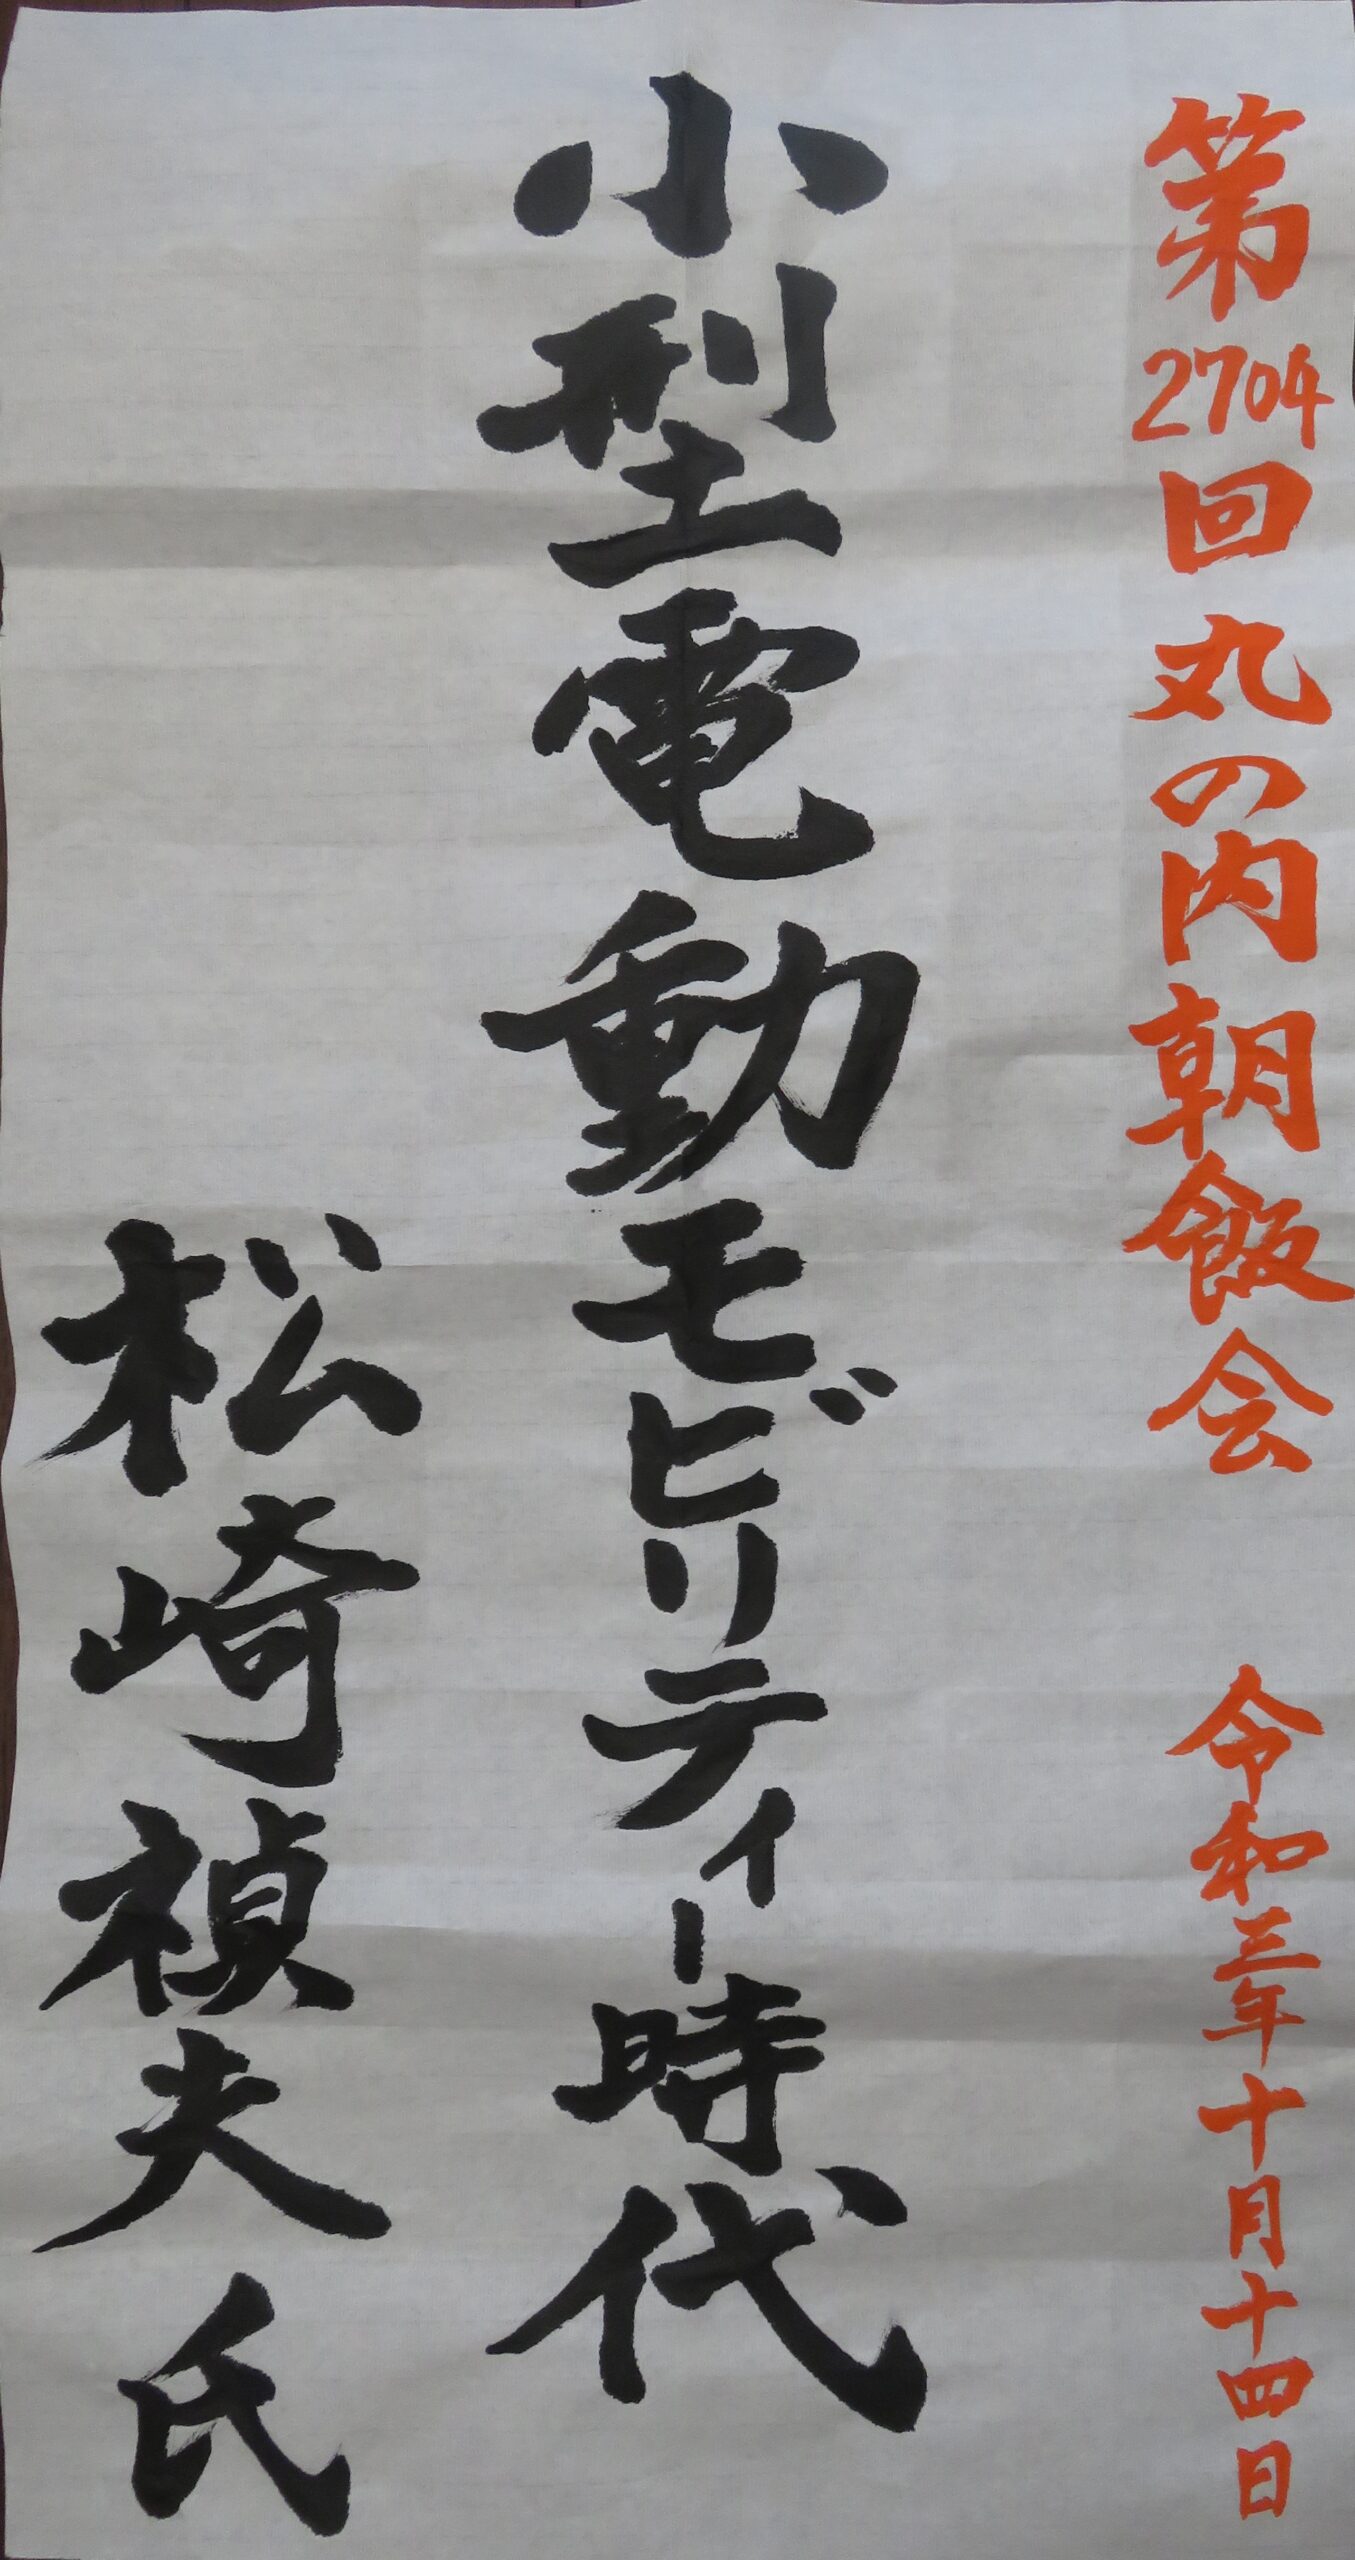 第2704回丸の内朝飯会 令和三年十月十四日
小型電動モビリティー時代
松崎禎夫氏